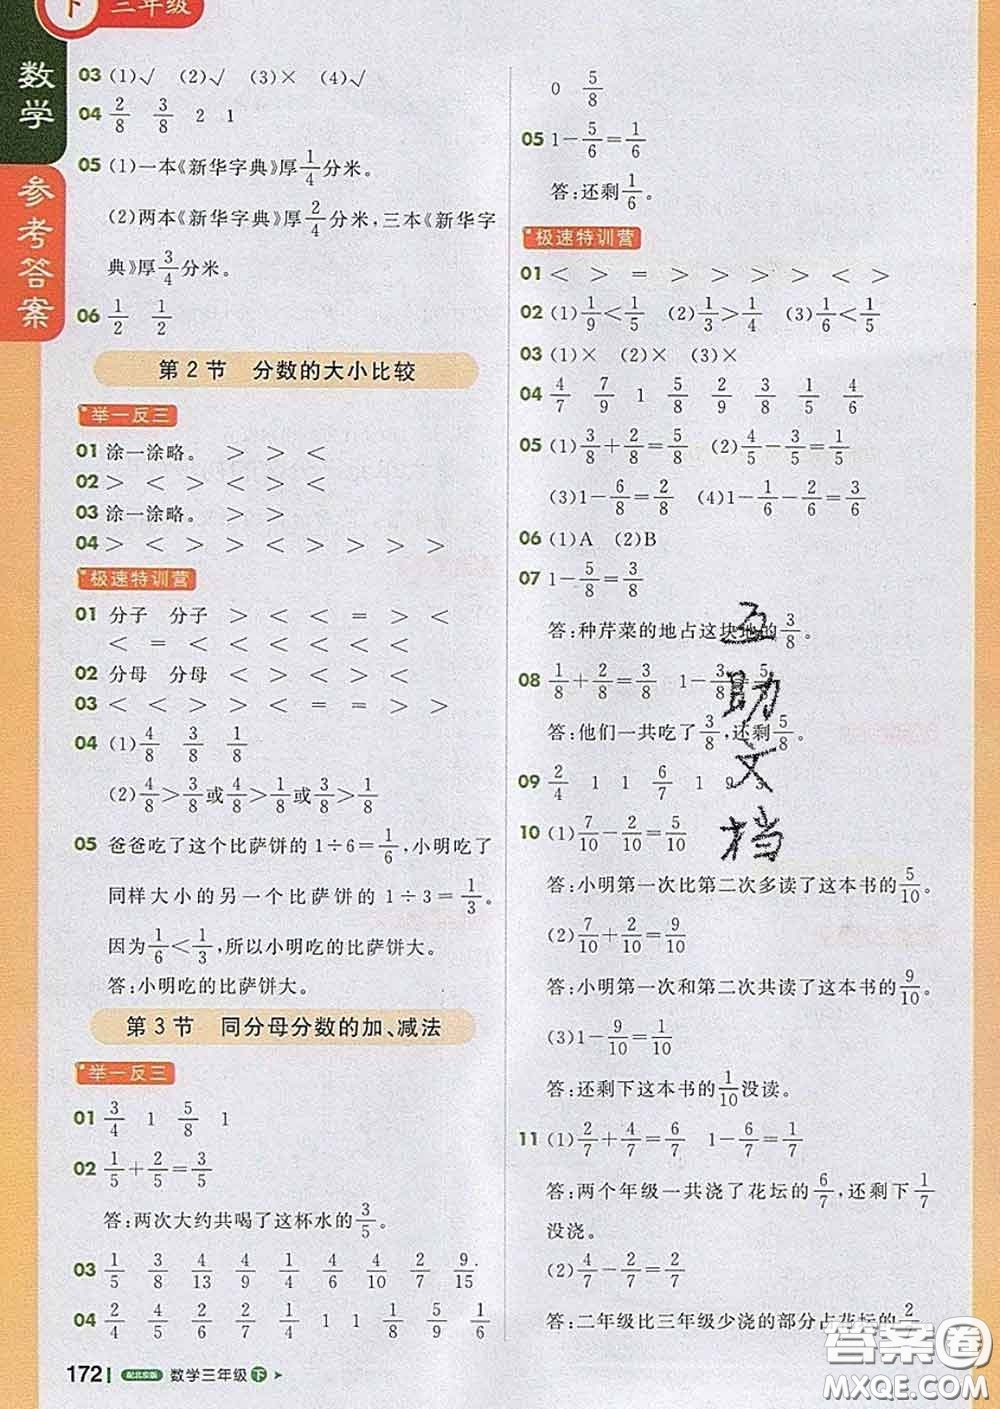 下 三年级
数学
参考答案
03 (1)√ (2)√ (3)× (4)√
04 2/8 3/8 2 1
05 (1)一本《新华字典》厚1/4分米。
(2)两本《新华字典》厚2/4分米,三本《新华字
典》厚3/4分米。
06 1/2 1/2
第2节 分数的大小比较
举一反三
01 涂一涂略。 > > <
02 > < > < > > <
03 涂一涂略。 > >
04 > < > > < > > > >
极速特训营
01 分子 分子 > < < = > <
< = < < < < < <
02 分母 分母 < > > > > >
03 < > > > < = = > >
04 (1)4/8 3/8 1/8
(2)4/8>3/8或4/8>1/8或3/8>1/8
05 爸爸吃了这个比萨饼的1÷6=1/6,小明吃了
同样大小的另一个比萨饼的1÷3=1/3。
因为1/6<1/3,所以小明吃的比萨饼大。
答:小明吃的比萨饼大。
第3节 同分母分数的加、减法
举一反三
01 3/4 1 5/8 1
02 1/5+2/5=3/5
答:两次大约共喝了这杯水的3/5。
03 1/5 3/8 4/13 4/9 1/4 4/6 4/10 2/7 9/15
04 2/4 4/5 2/6 2/7 1/4 1 1 1/8 5/9 1/6
0 5/8
05 1-5/6=1/6
答:还剩1/6。
极速特训营
01 < > = > > > > < >
02 (1)1/9<1/5 (2)1/3>1/4 (3)1/6<1/5
03 (1)× (2)× (3)×
04 4/7 7/9 1 5/8 2/9 3/8 4/5 4/6
05 (1)3/8+2/8=5/8 (2)4/5-3/5=1/5
(3)1-6/8=2/8 (4)1-1/6-2/6=3/6
06 (1)A (2)B
07 1-5/8=3/8
答:种芹菜的地占这块地的3/8。
08 1/8+2/8=3/8 1-3/8=5/8
答:他们一共吃了3/8,还剩5/8。
09 2/4 1 1 6/7 1 9
10 (1)7/10-2/10=5/10
答:小明第一次比第二次多读了这本书的5/10。
(2)7/10+2/10=9/10
答:小明第一次和第二次共读了这本书的9/10。
(3)1-9/10=1/10
答:还剩下这本书的1/10没读。
11 (1)2/7+4/7=6/7 1-6/7=1/7
答:两个年级一共浇了花坛的6/7,还剩下1/7
没浇。
(2)4/7-2/7=2/7
答:二年级比三年级少浇的部分占花坛的
互助文档
172 配北京版 数学三年级 下
答案圈
MXQE.COM